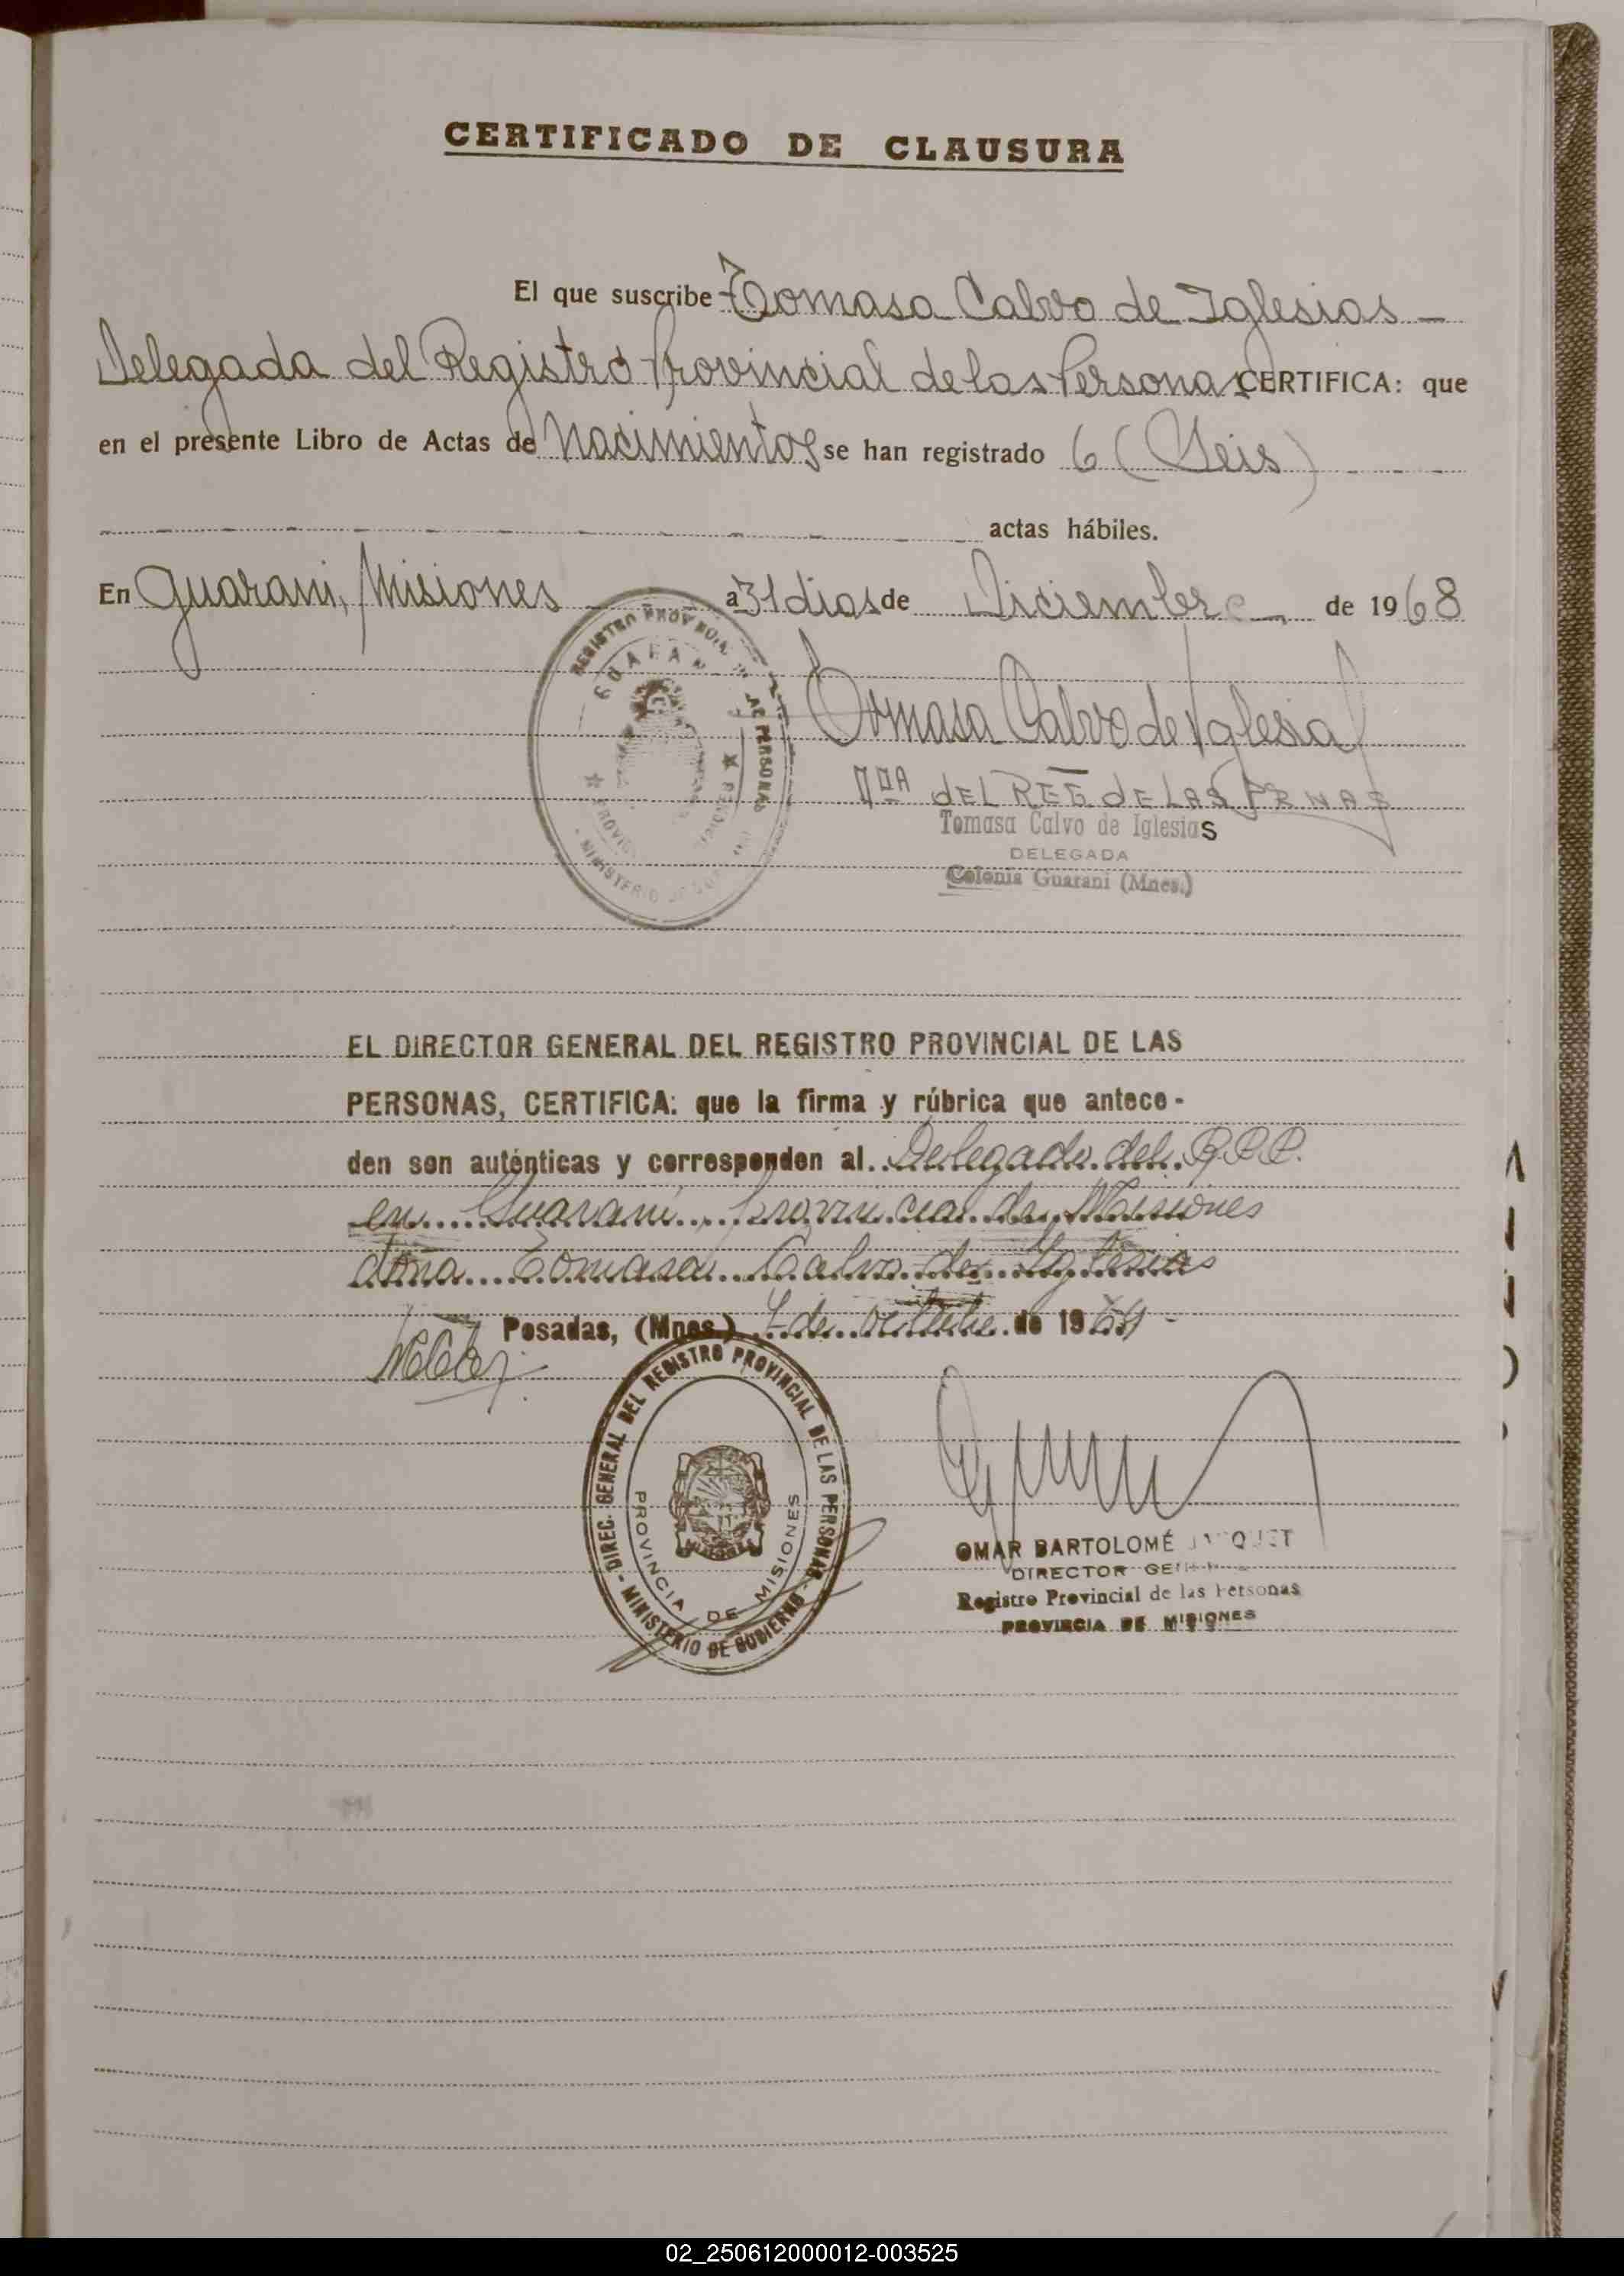 CERTIFICADO DE CLAUSURA
El que suscribe Tomasa Calvo de Iglesias
Delegada del Registro Provincial de las Personas CERTIFICA: que
en el presente Libro de Actas de Nacimientos se han registrado 6 (Seis)
actas hábiles.
En Guarani, Misiones a 31 dias de Diciembre de 1968
Tomasa Calvo de Iglesias
DEL REG DE LAS PRNAS
Tomasa Calvo de Iglesias
DELEGADA
Colonia Guarani (Mnes.)
EL DIRECTOR GENERAL DEL REGISTRO PROVINCIAL DE LAS
PERSONAS, CERTIFICA: que la firma y rúbrica que antece-
den son auténticas y corresponden al Delegado del R.P.P.
en Guaraní, provincia de Misiones
doña Tomasa Calvo de Iglesias
Posadas, (Mnes.) de octubre de 1969
DIREC. GENERAL DEL REGISTRO PROVINCIAL DE LAS PERSONAS - MINISTERIO DE GOBIERNO -
PROVINCIA DE MISIONES
OMAR BARTOLOMÉ
DIRECTOR
Registro Provincial de las Personas
PROVINCIA DE MISIONES
02_250612000012-003525